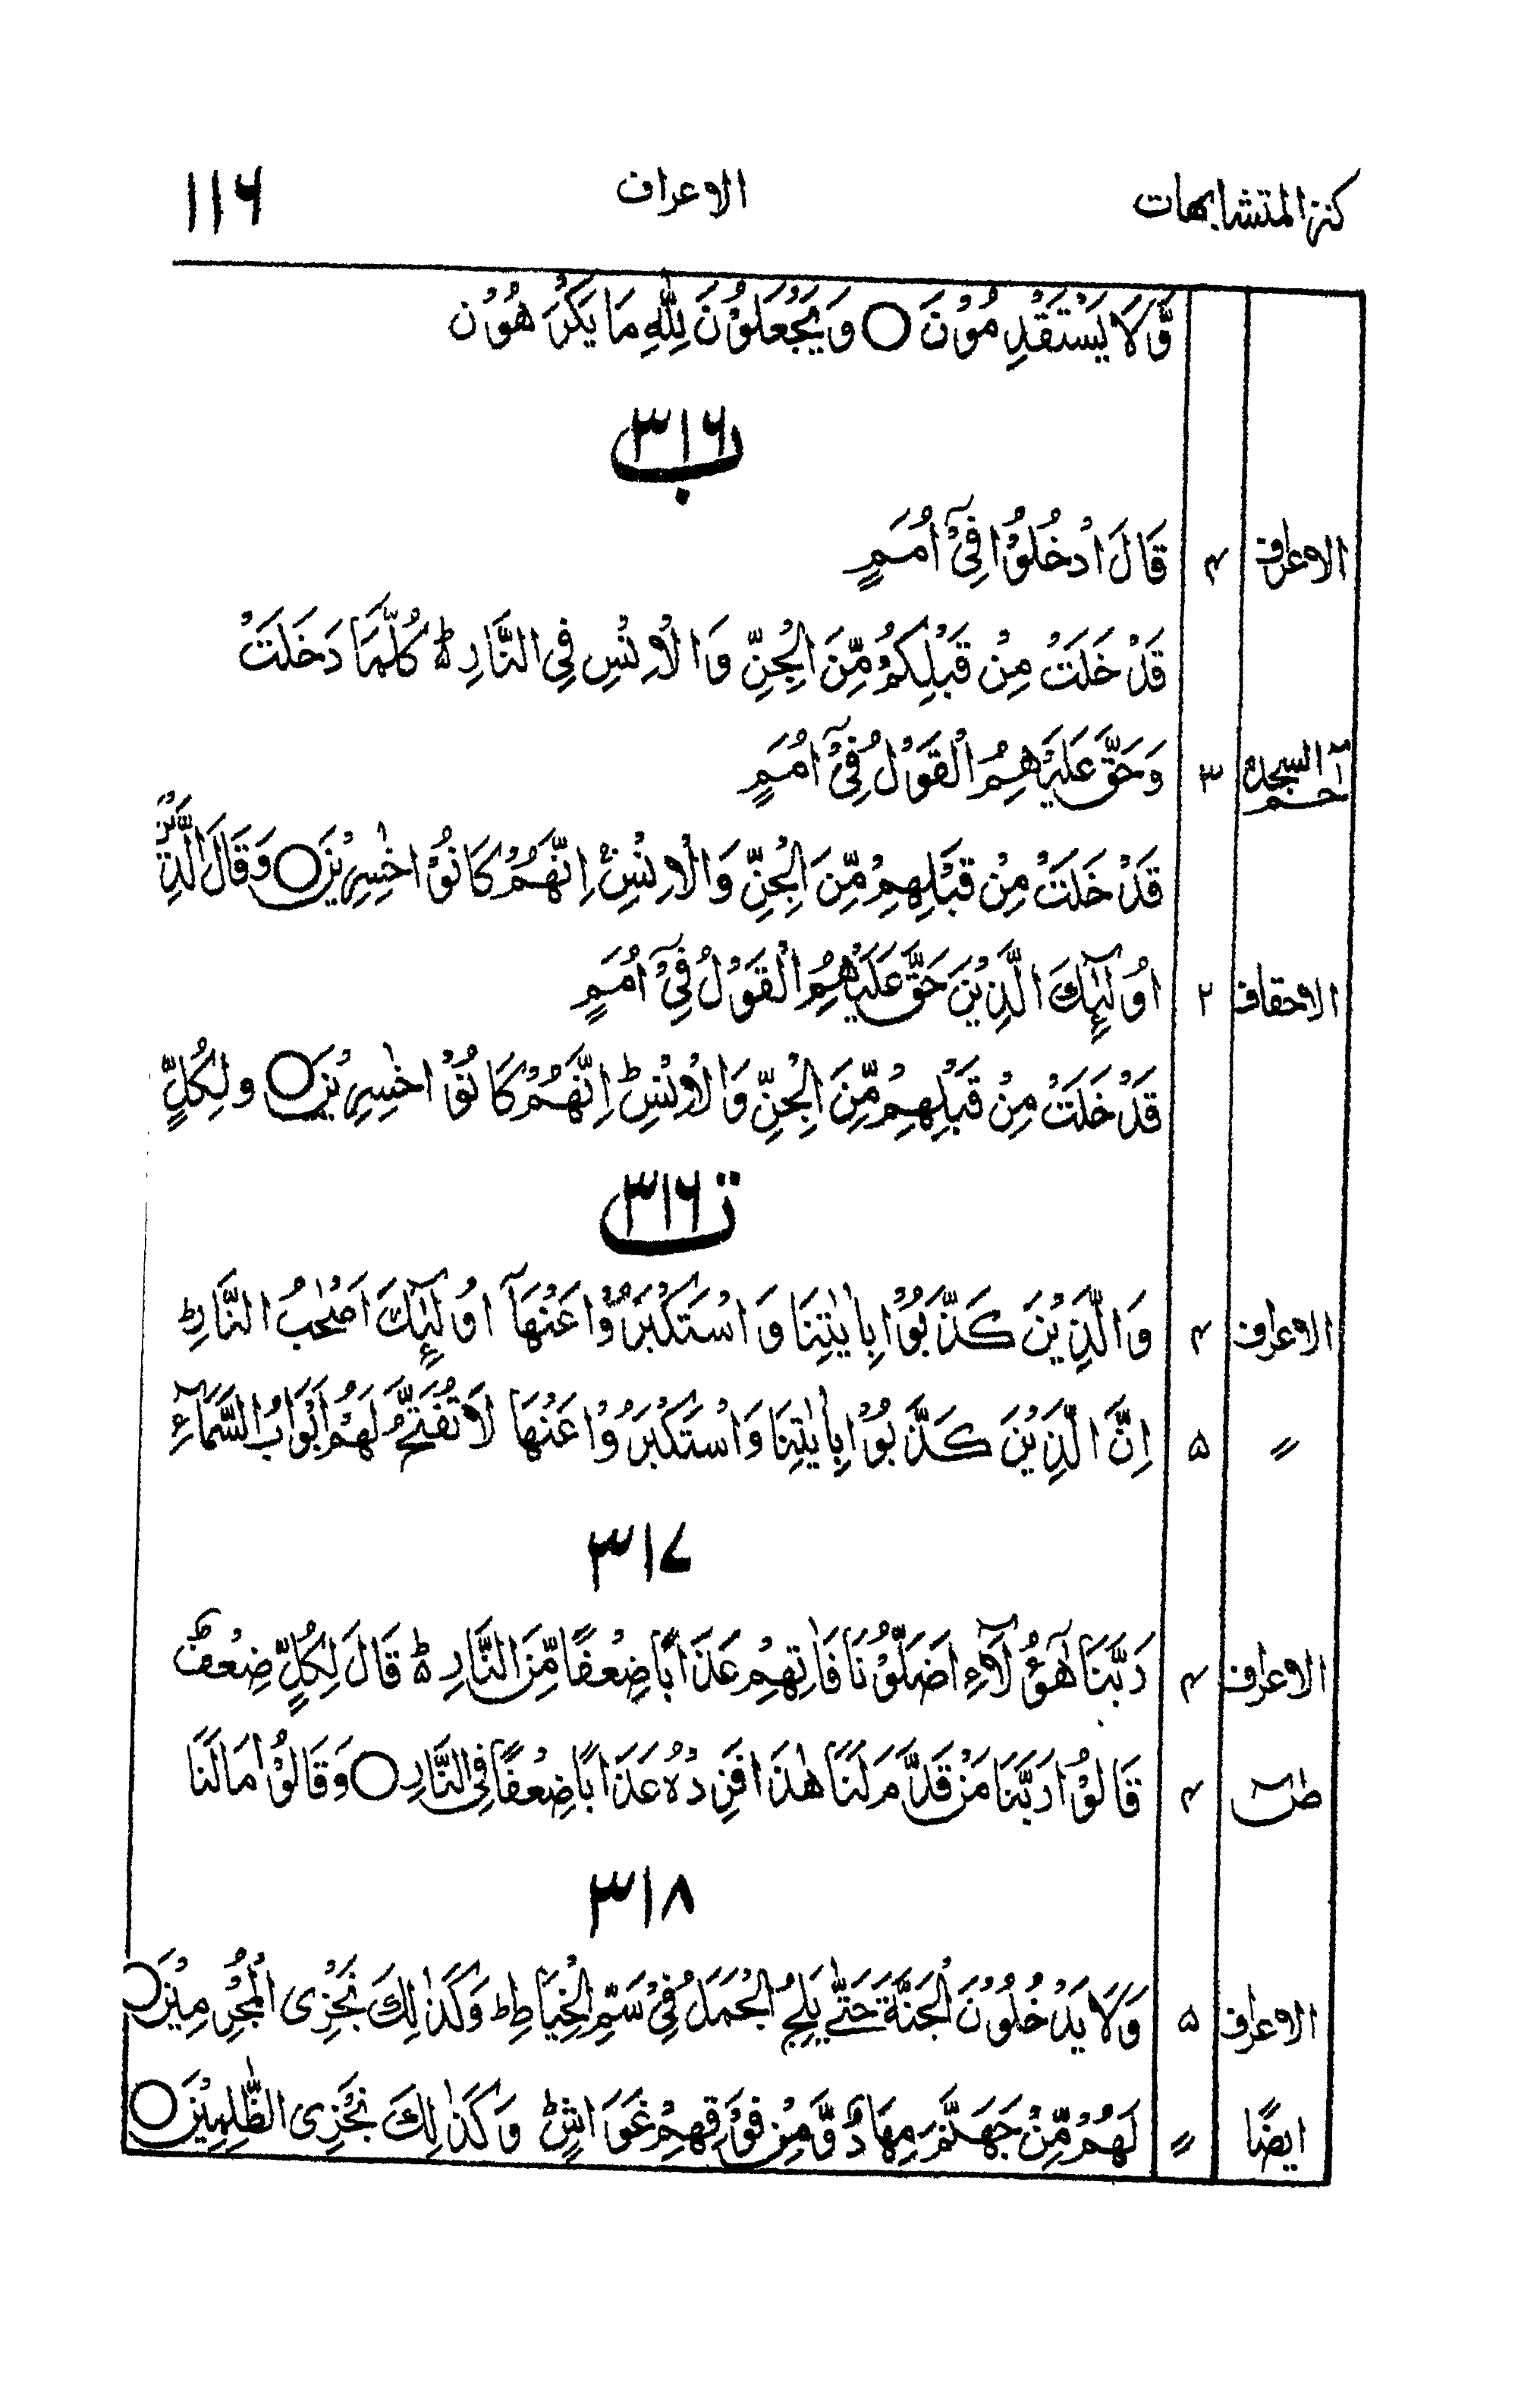 كنز المتشابهات الاعراف ١١٦
وَّلَا يَسْتَقْدِمُوْنَ ○ وَيَجْعَلُوْنَ لِلّٰهِ مَا يَكْرَهُوْن
٣١٦ب
الاعراف ۴ قَالَ ادْخُلُوْا فِيْٓ اُمَمٍ
قَدْ خَلَتْ مِنْ قَبْلِكُمْ مِّنَ الْجِنِّ وَالْاِنْسِ فِي النَّارِ ؕ كُلَّمَا دَخَلَتْ
حٰم السجدہ ٣ وَحَقَّ عَلَيْهِمُ الْقَوْلُ فِيْٓ اُمَمٍ
قَدْ خَلَتْ مِنْ قَبْلِهِمْ مِّنَ الْجِنِّ وَالْاِنْسِ ۚ اِنَّهُمْ كَانُوْا خٰسِرِيْنَ ○ وَقَالَ الَّذِيْنَ
الاحقاف ٢ اُولٰٓئِكَ الَّذِيْنَ حَقَّ عَلَيْهِمُ الْقَوْلُ فِيْٓ اُمَمٍ
قَدْ خَلَتْ مِنْ قَبْلِهِمْ مِّنَ الْجِنِّ وَالْاِنْسِ ؕ اِنَّهُمْ كَانُوْا خٰسِرِيْنَ ○ ولِكُلٍّ
٣١٦ت
الاعراف ۴ وَالَّذِيْنَ كَذَّبُوْا بِاٰيٰتِنَا وَاسْتَكْبَرُوْا عَنْهَآ اُولٰٓئِكَ اَصْحٰبُ النَّارِ ؕ
〃 ۵ اِنَّ الَّذِيْنَ كَذَّبُوْا بِاٰيٰتِنَا وَاسْتَكْبَرُوْا عَنْهَا لَا تُفَتَّحُ لَهُمْ اَبْوَابُ السَّمَآءِ
٣١٧
الاعراف ۴ رَبَّنَا هٰٓؤُلَآءِ اَضَلُّوْنَا فَاٰتِهِمْ عَذَابًا ضِعْفًا مِّنَ النَّارِ ؕ قَالَ لِكُلٍّ ضِعْفٌ
صٓ ۴ قَالُوْا رَبَّنَا مَنْ قَدَّمَ لَنَا هٰذَا فَزِدْهُ عَذَابًا ضِعْفًا فِي النَّارِ ○ وَقَالُوْا مَا لَنَا
٣١٨
الاعراف ۵ وَلَا يَدْخُلُوْنَ الْجَنَّةَ حَتّٰى يَلِجَ الْجَمَلُ فِيْ سَمِّ الْخِيَاطِ ؕ وَكَذٰلِكَ نَجْزِى الْمُجْرِمِيْنَ ○
ايضًا 〃 لَهُمْ مِّنْ جَهَنَّمَ مِهَادٌ وَّمِنْ فَوْقِهِمْ غَوَاشٍ ؕ وَكَذٰلِكَ نَجْزِى الظّٰلِمِيْنَ ○